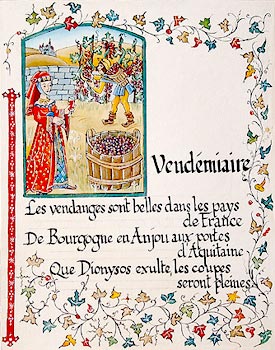 Vendémiaire
Les vendanges sont belles dans les pays
de France
De Bourgogne en Anjou aux portes
d'Aquitaine
Que Dionysos exulte, les coupes
seront pleines